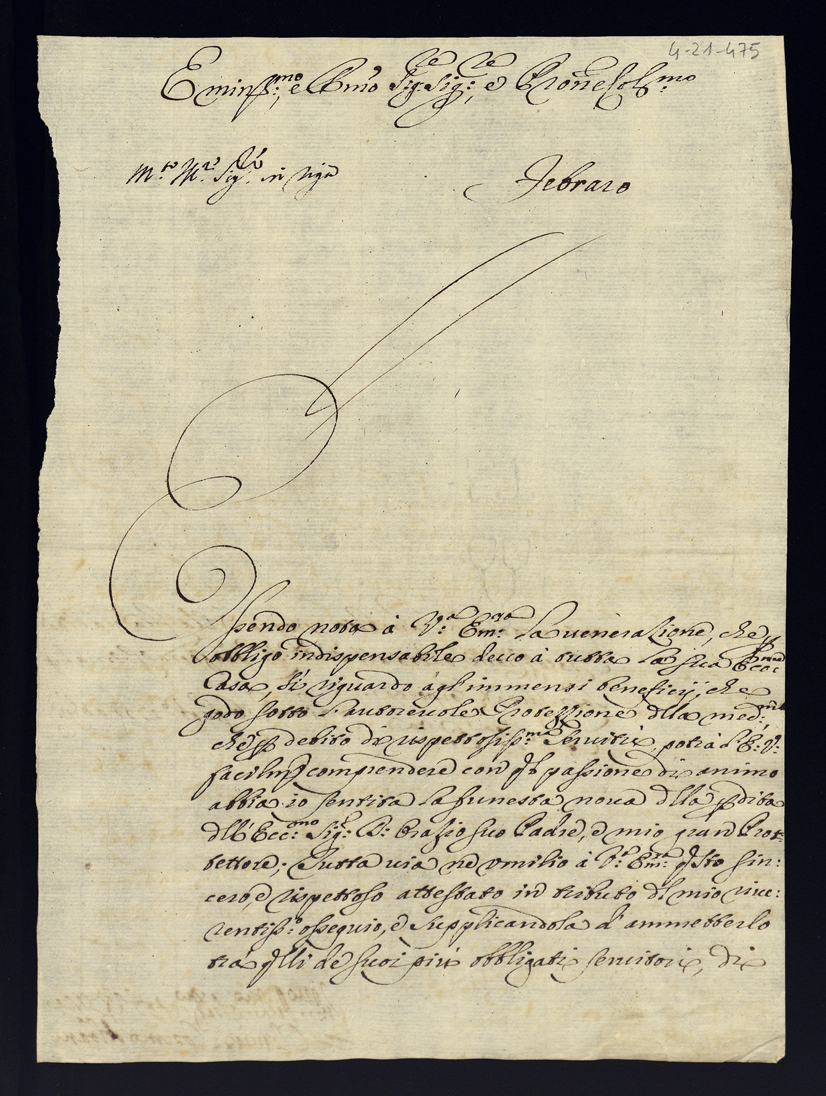 4-21-475
Eminss.mo, e Rmo Sig.re Sig.re, e Prone Col.mo
Febraro
Essendo nota à V.a Em.nza la venerazione, che p
obbligo indispensabile devo à tutta la sua Ecc.ma
Casa, si riguardo àgl'immensi beneficij, che
godo sotto l'autorevole Protezzione della med.ma
che p debito di rispettosiss.ma servitù, potrà l'E: V.
facilm.te comprendere con ql passione di animo
abbia io sentita la funesta nova della pdita
dell'Ecc.mo Sig.r D. Orazio suo Padre, e mio gran Prot=
tettore; Tutta via ne umilio à V.a Em.nza qsto sin:
cero, e rispettoso attestato in tributo del mio rive:
rentiss.o ossequio, e supplicandola d'ammetterlo
trà qlli de suoi più obbligati servitori, di